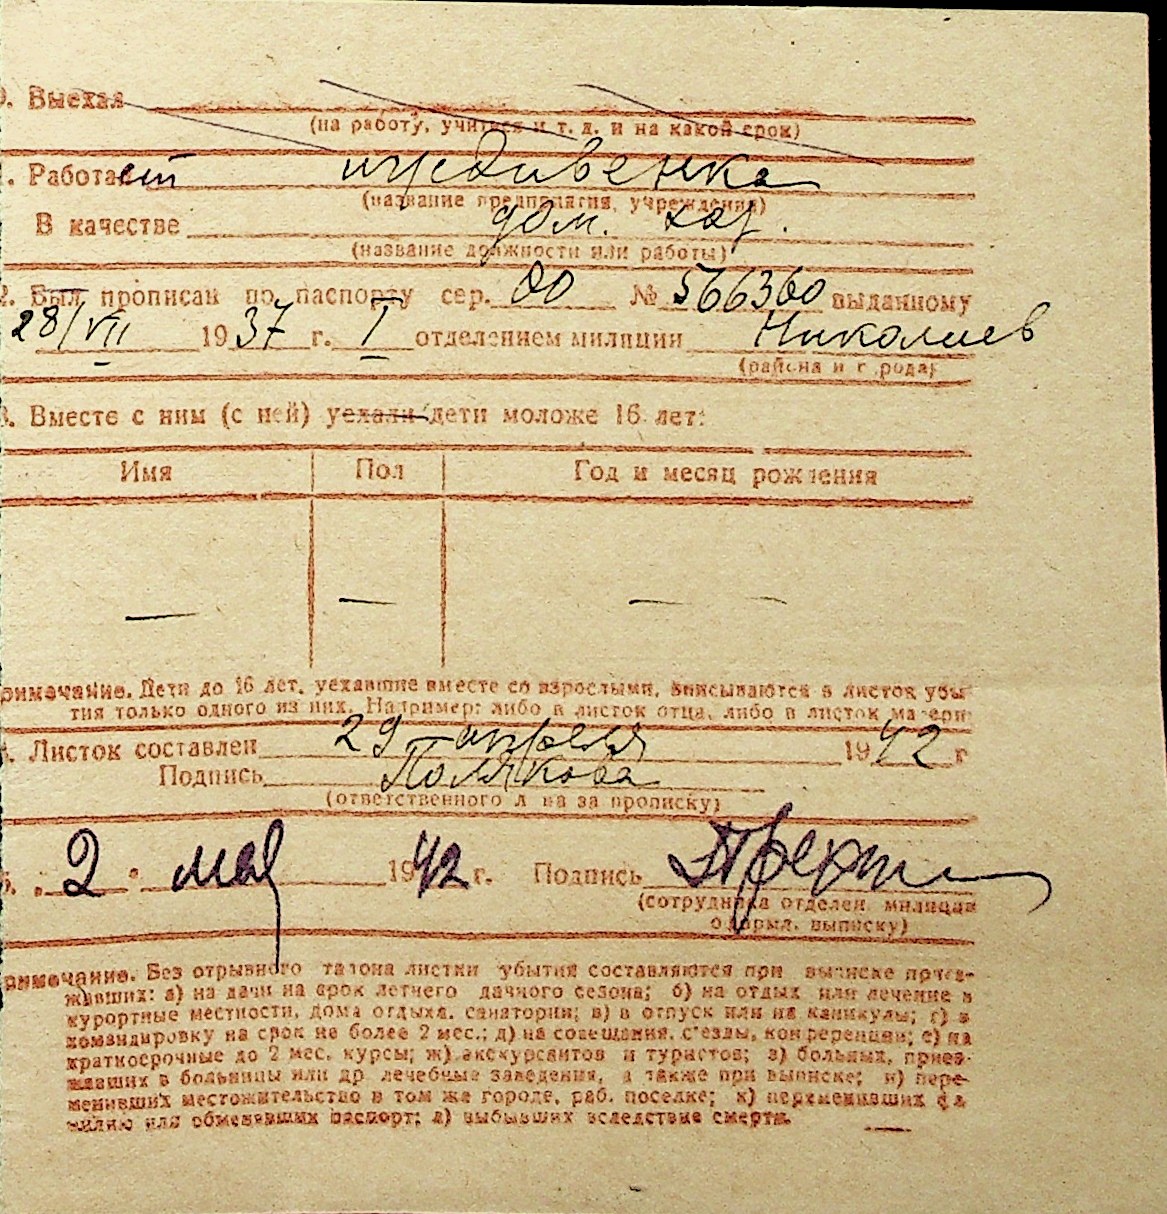 0. Выехал
(на работу, учиться и т. д. и на какой срок)
. Работает иждивенка
(название предприятия, учреждения)
В качестве дом. хоз.
(название должности или работы)
2. Был прописан по паспорту сер. ОО № 566360 выданному
28/VII 1937 г. I отделением милиции Николаев
(района и города)
3. Вместе с ним (с ней) уехали дети моложе 16 лет:
Имя Пол Год и месяц рождения
— — — —
римечание. Дети до 16 лет, уехавшие вместе со взрослыми, вписываются в листок убы-
тия только одного из них. Например: либо в листок отца, либо в листок матери
. Листок составлен 29 апреля 1942 г
Подпись Полякова
(ответственного лица за прописку)
5. „2" мая 1942 г. Подпись
(сотрудника отделен. милиции
оформл. выписку)
римечание. Без отрывного талона листки убытия составляются при выписке приез-
жавших: а) на дачи на срок летнего дачного сезона; б) на отдых или лечение в
курортные местности, дома отдыха, санатории; в) в отпуск или на каникулы; г) в
командировку на срок не более 2 мес.; д) на совещания, с'езды, конференции; е) на
краткосрочные до 2 мес. курсы; ж) экскурсантов и туристов; з) больных, приез-
жавших в больницы или др лечебные заведения, а также при выписке; и) пере-
менивших местожительство в том же городе, раб. поселке; к) переменивших фа-
милию или обменявших паспорт; л) выбывших вследствие смерти.